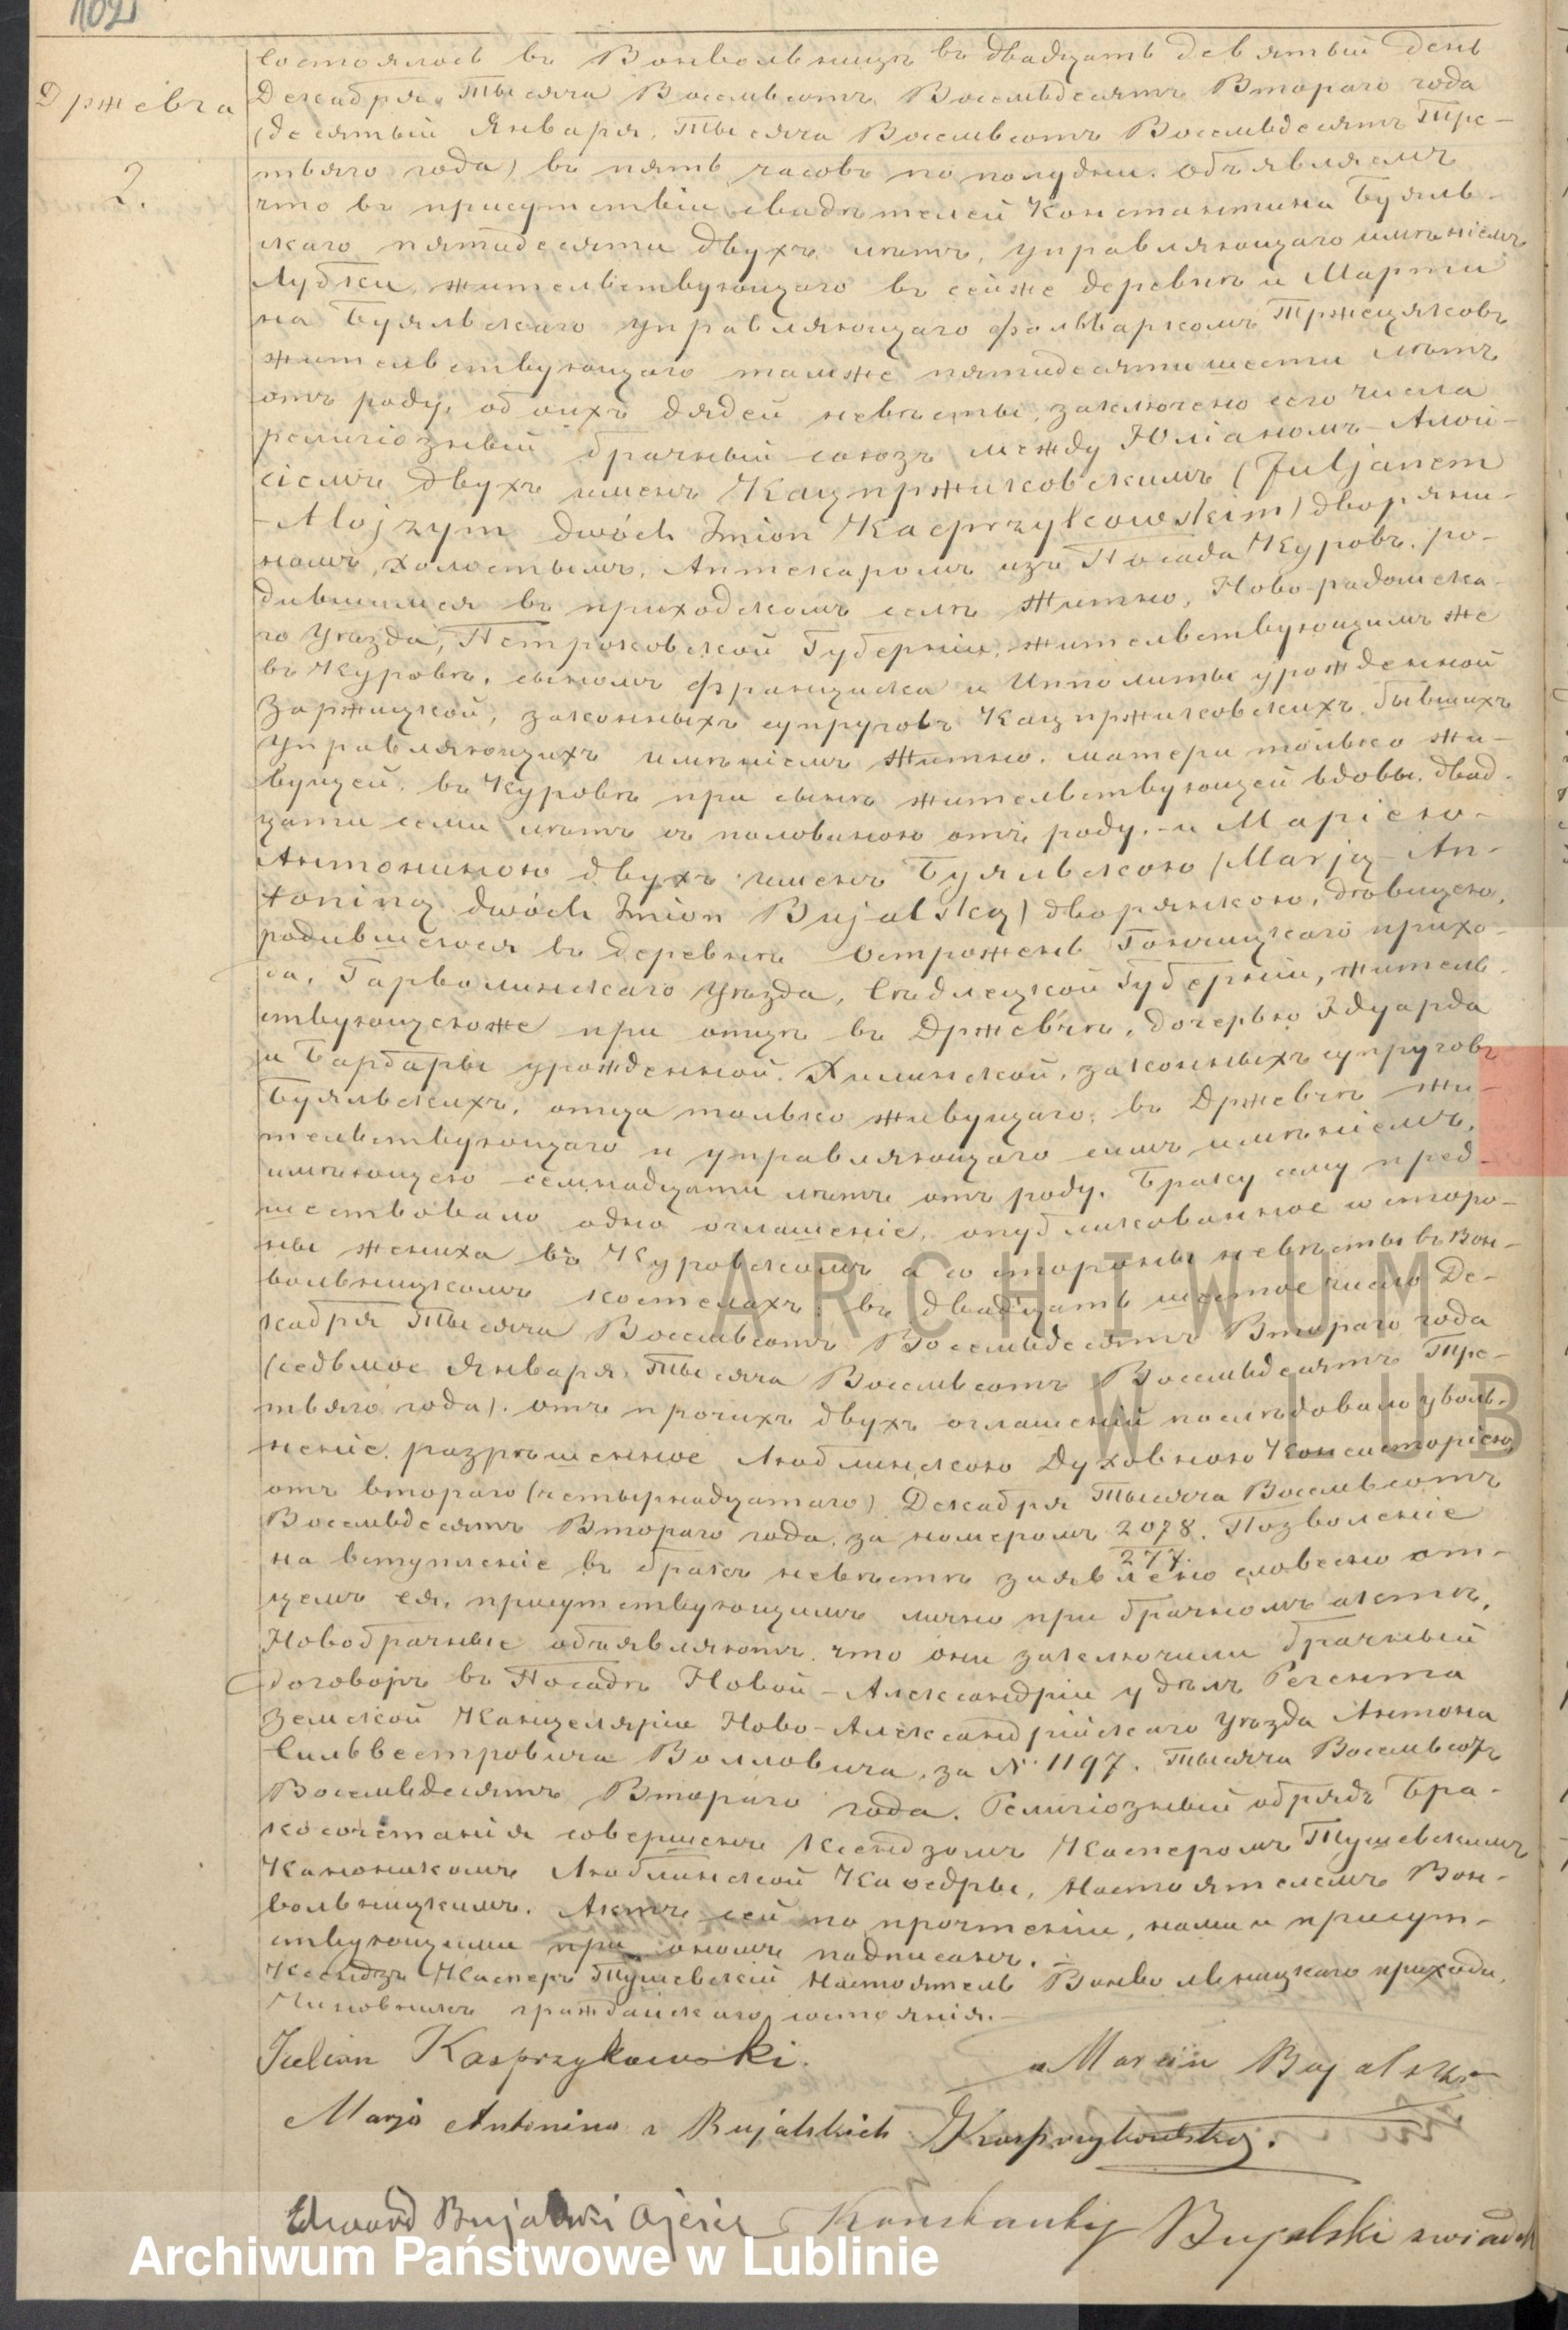 102
Држевча
2.
Состоялось въ Вонвольницѣ въ двадцать девятый день
Декабря, Тысяча Восемьсотъ Восемьдесятъ Втораго года
(десятый Января, Тысяча Восемьсотъ Восемьдесятъ Тре-
тьяго года) въ пять часовъ по полудни. Объявляемъ
что въ присутствіи свидѣтелей Константина Буяль-
скаго пятидесяти двухъ лѣтъ, управляющаго имѣніемъ
Лубки, жительствующаго въ сейже деревнѣ и Марти-
на Буяльскаго управляющаго фольваркомъ Тржецяковъ
жительствующаго тамже пятидесятишести лѣтъ
отъ роду, обоихъ дядей невѣсты, заключено сего числа
религіозный брачный союзъ между Юліаномъ-Алои-
сіемъ двухъ именъ Кацпржиковскимъ (Juljanem
-Alojzym dwóch Imion Kacprzykowskim) дворяни-
номъ, холостымъ, Аптекаромъ изъ Посада Куровъ, ро-
дившимся въ приходскомъ селѣ Житно, Ново-радомска-
го Уѣзда, Петроковской Губерніи, жительствующимъ же
въ Куровѣ, сыномъ Францишка и Ипполиты урожденной
Заржицкой, законныхъ супруговъ Кацпржиковскихъ, бывшихъ
Управляющихъ имѣніемъ Житно, матери только жи-
вущей, въ Куровѣ при сынѣ жительствующей вдовы, двад-
цати семи лѣтъ съ половиною отъ роду, - и Маріею-
Антониною двухъ именъ Буяльскою (Marją-An-
toniną dwóch Imion Bujalską) дворянкою, дѣвицею,
родившеюся въ деревнѣ Острожень Гончицкаго прихо-
да, Гарволинскаго Уѣзда, Сѣдлецкой Губерніи, житель-
ствующеюже при отцѣ въ Држевчѣ, дочерью Эдуарда
и Барбары урожденной Хилинской, законныхъ супруговъ
Буяльскихъ, отца только живущаго, въ Држевчѣ жи-
тельствующаго и управляющаго симъ имѣніемъ,
имѣющею семнадцати лѣтъ отъ роду. Браку сему пред-
шествовало одно оглашеніе, опубликованное со сторо-
ны жениха въ Куровскомъ а со стороны невѣсты въ Вон-
вольницкомъ костелахъ: въ двадцать шестое число Де-
кабря Тысяча Восемьсотъ Восемьдесятъ Втораго года
(седьмое Января, Тысяча Восемьсотъ Восемьдесятъ Тре-
тьяго года). отъ прочихъ двухъ оглашеній послѣдовало уволь-
неніе, разрѣшенное Люблинскою Духовною Консисторіею
отъ втораго (четырнадцатаго) Декабря Тысяча Восемьсотъ
Восемьдесятъ Втораго года, за номеромъ 2078/277. Позволеніе
на вступленіе въ бракъ невѣстѣ заявлено словесно от-
цемъ ея, присутствующимъ лично при брачномъ актѣ,
Новобрачные объявляютъ, что они заключили брачный
договоръ въ Посадѣ Новой-Александріи у дѣлъ Регента
Земской Канцеляріи Ново-Александрійскаго Уѣзда Антона
Сильвестровича Волловича, за № 1197. Тысяча Восемьсотъ
Восемьдесятъ Втораго года. Религіозный обрядъ Бра-
косочетанія совершенъ Ксендзомъ Касперомъ Тушевскимъ
Каноникомъ Люблинской Каѳедры, Настоятелемъ Вон-
вольницкимъ. Актъ сей по прочтеніи, нами и присут-
ствующими при ономъ подписанъ. -
Ксендзъ Касперъ Тушевскій Настоятель Вонвольницкаго прихода,
Чиновникъ гражданскаго состоянія. -
Julian Kasprzykowski.
Marcin Bujalski
Marja Antonina z Bujalskich Kasprzykowska.
Edward Bujalski Ojciec Konstanty Bujalski swiadek
ARCHIWUM
W LUB
Archiwum Państwowe w Lublinie